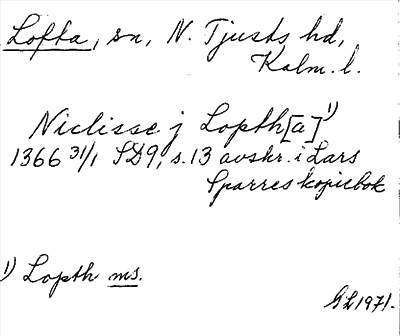 Lofta, sn, N. Tjusts hd,
Kalm. l.
Niclisse j Lopth[a] 1)
1366 31/1 SD9, s. 13 avskr. i Lars
Sparres kopiebok
1) Lopth ms.
GL 1971.